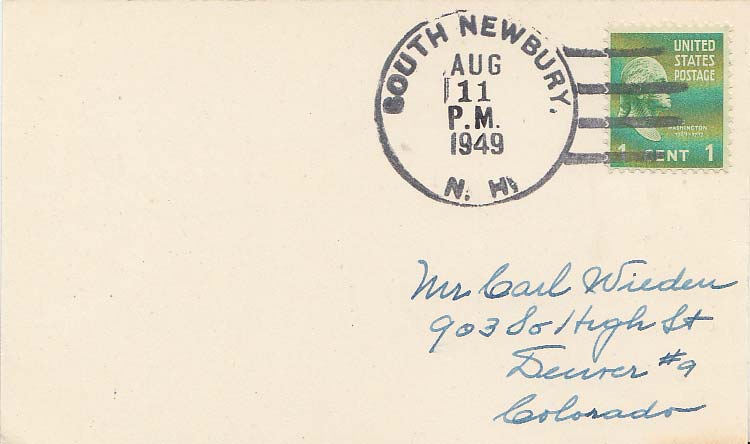 SOUTH NEWBURY.
AUG
11
P.M.
1949
N. H.
UNITED
STATES
POSTAGE
WASHINGTON
1 CENT 1
Mr Carl Wieden
903 So High St
Denver #9
Colorado